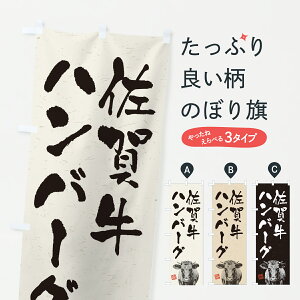 佐賀牛
ハンバーグ
たっぷり
良い柄
のぼり旗
やったね
えらべる 3タイプ
A
B
C
佐賀牛
ハンバーグ
佐賀牛
ハンバーグ
佐賀牛
ハンバーグ